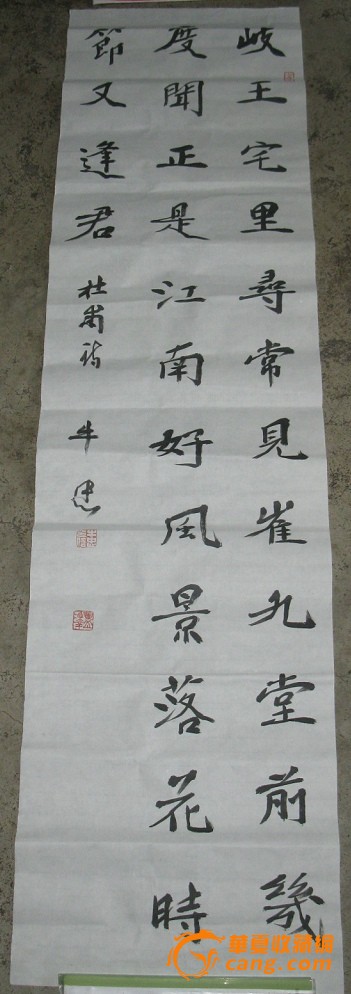 岐王宅里尋常見崔九堂前幾
度聞正是江南好風景落花時
節又逢君 杜甫诗 牛忠
華夏收藏網
cang.com